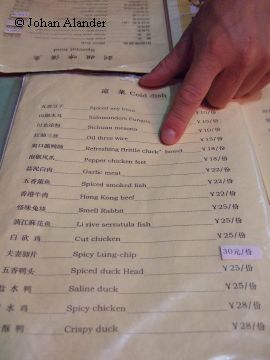 © Johan Alander
Special food
凉 菜 Cold dish
Spiced soy bean ¥10/份
Salamanders Fungus ¥10/份
Sichuan ¥10/份
Oil three wire ¥15/份
Refreshing Brittle bowel ¥18/份
Pepper chicken feet ¥18/份
蒜泥白肉 Garlic meat ¥22/份
五香熏鱼 Spiced smoked fish ¥22/份
香港牛肉 Hong Kong beef ¥22/份
怪味兔丝 Smell Rabbit ¥25/份
漓江麻花鱼 Li rive serratula fish ¥25/份
白砍鸡 Cut chicken ¥25/份
夫妻肺片 Spicy Lung-chip 30元/份
五香鸭头 Spiced duck Head ¥25/份
盐水鸭 Saline duck ¥25/份
水鸡 Spicy chicken ¥28/份
鸭 Crispy duck ¥28/份